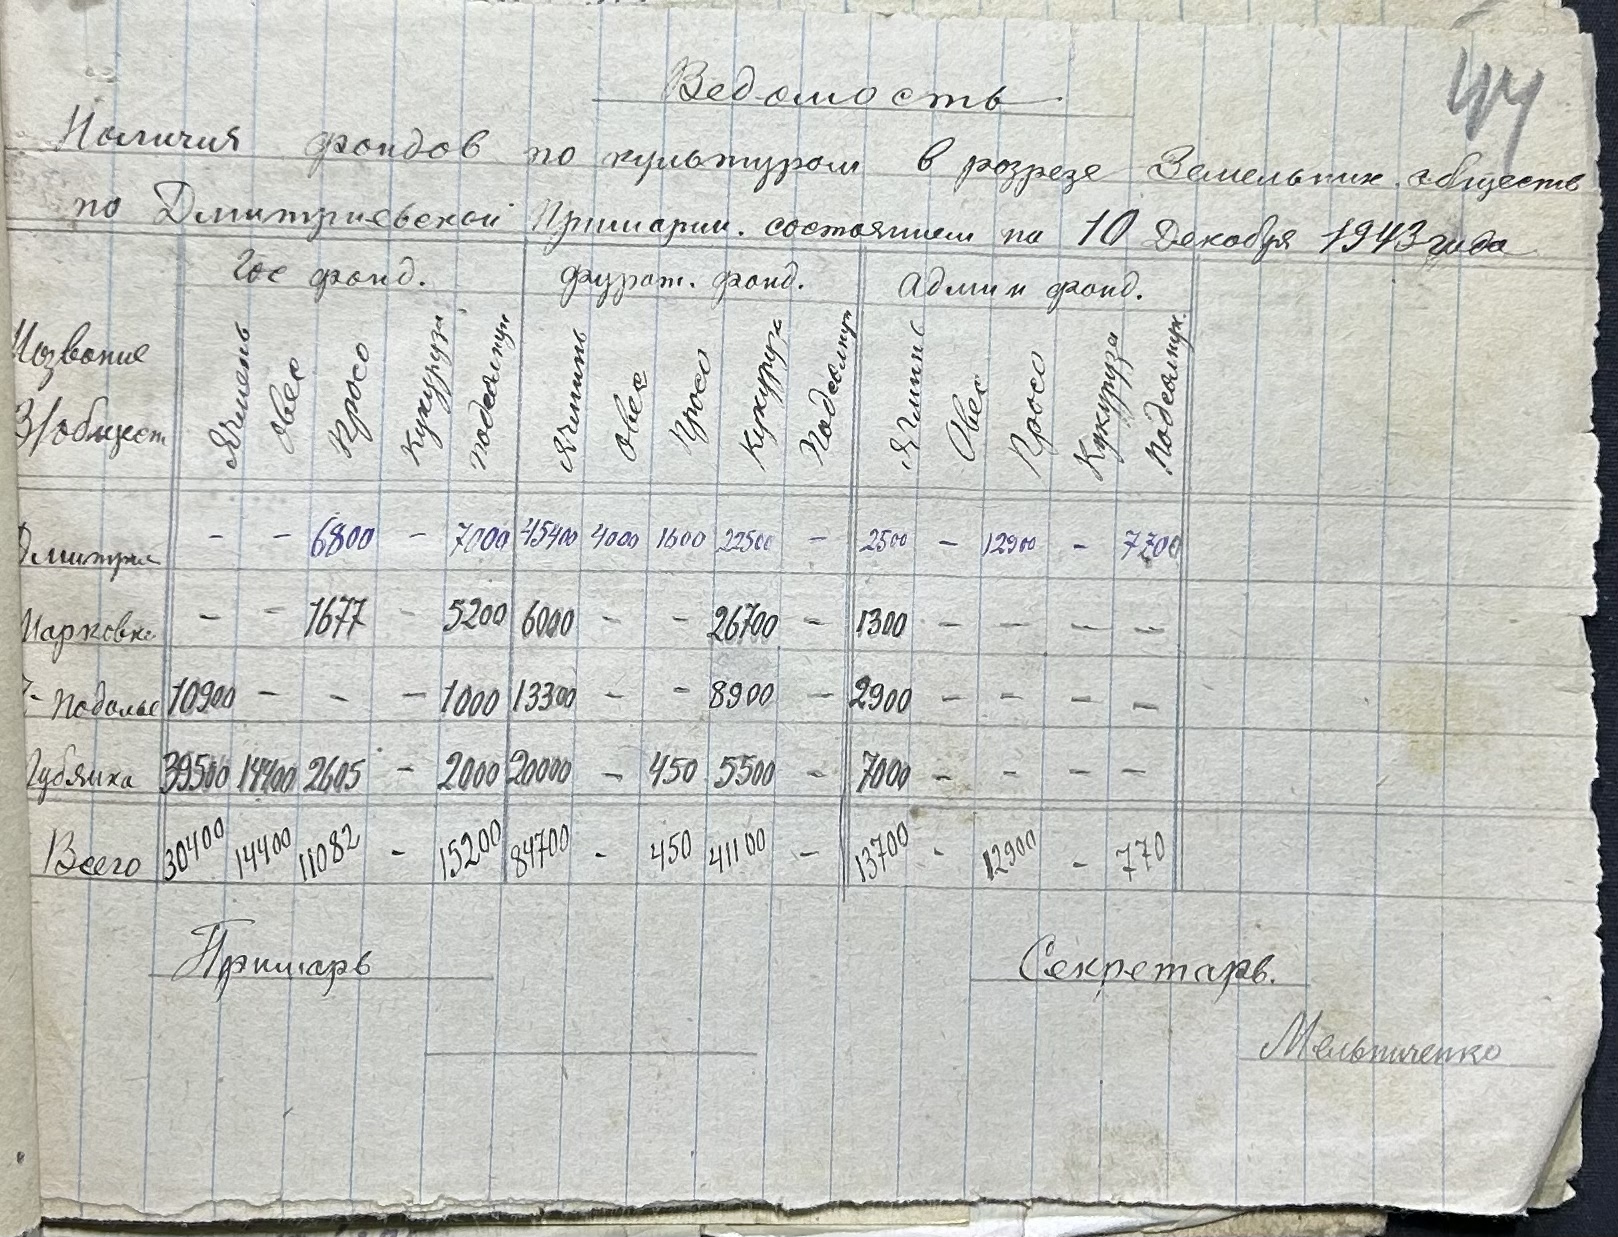 44
Ведомость
Наличия фондов по культурам в розрезе Земельних обществ
по Дмитриевской Примарии. состоянием на 10 Декабря 1943 года
Гос фонд. фураж. фонд. Админ фонд.
Название
З/общест
Ячмень Овес Просо Кукуруза подсолнух Ячминь Овес Просо Кукуруза Подсолнух Ячминь Овес Просо Кукуруза Подсолнух.
Дмитрие - - 6800 - 7000 45400 4000 1600 22500 - 2500 - 12900 - 7700
Марковка - - 1677 - 5200 6000 - - 26700 - 1300 - - - -
Подолье 10900 - - - 1000 13300 - - 8900 - 2900 - - - -
Губянка 39500 14400 2605 - 2000 20000 - 450 5500 - 7000 - - - -
Всего 30400 14400 11082 - 15200 84700 - 450 41100 - 13700 - 12900 - 770
Примарь Секретарь.
Мельниченко